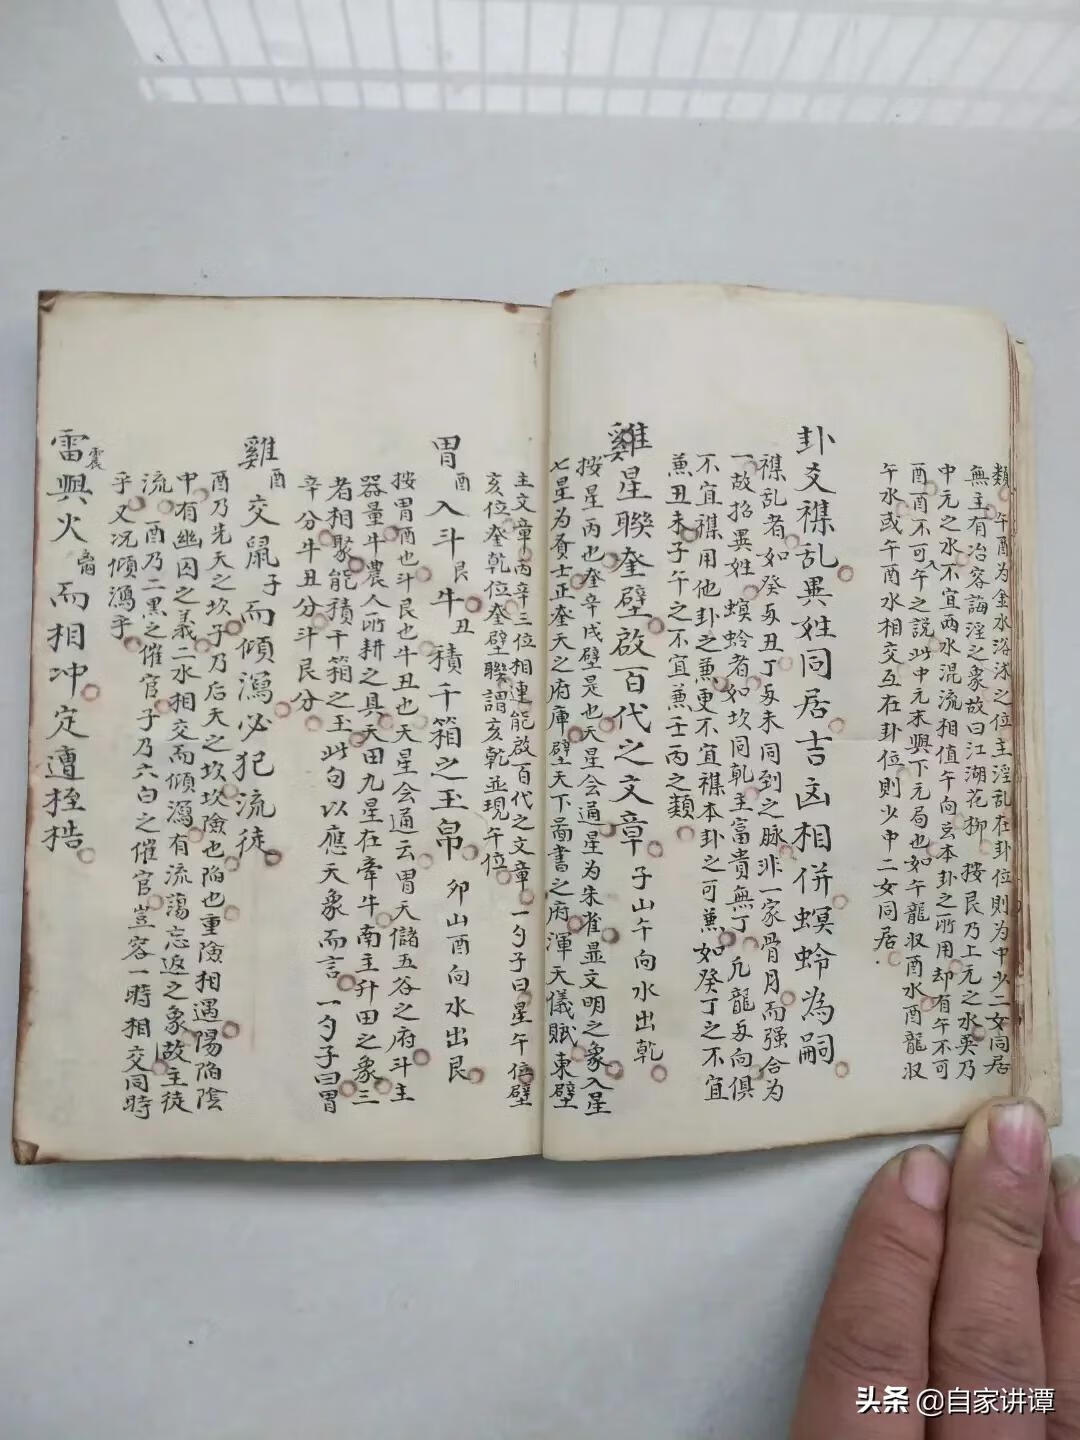 類午酉为金水浴沐之位主淫乱在卦位則为中少二女同居
無主有冶容誨淫之象故曰江湖花柳 按艮乃上元之水兑乃
中元之水不宜两水混流相值午向兑本卦之所用却有午不可
酉酉不可午之説此中元未興下元局也如午龍収酉水酉龍収
午水或午酉水相交互在卦位則少中二女同居
卦爻襍乱異姓同居吉凶相併螟蛉為嗣
襍乱者如癸与丑丁与未同到之脉非一家骨月而强合为
一故招異姓螟蛉者如坎同乾主富貴無丁凢龍与向俱
不宜襍用他卦之兼更不宜襍本卦之可兼如癸丁之不宜
兼丑未子午之不宜兼壬丙之類
雞星聯奎壁啟百代之文章子山午向水出乾
按星丙也奎辛戌壁是也天星会通星为朱雀並文明之象入星
七星为贤士正奎天之府庫壁天下啚書之府渾天儀賦東壁
主文章丙辛三位相連能啟百代之文章一勺子曰星午位壁
亥位奎乾位奎壁聯謂亥乾並現午位
胃酉入斗艮牛丑積千箱之玉帛 卯山酉向水出艮
按胃酉也斗艮也牛丑也天星会通云胃天儲五谷之府斗主
器量斗農人所耕之具天田九星在牽牛南主升田之象三
者相聚能積千箱之玉此句以應天象而言一勺子曰胃
辛分牛丑分斗艮分
雞酉交鼠子而傾瀉必犯流徒
酉乃先天之坎子乃后天之坎坎險也陷也重險相遇陽陷陰
中有幽囚之義二水相交而傾瀉有流蕩忘返之象故主徒
流酉乃二黑之催官子乃六白之催官豈容一時相交同時
乎又况傾瀉乎
雷震興火而相冲定遭桎梏
头条 @自家讲谭